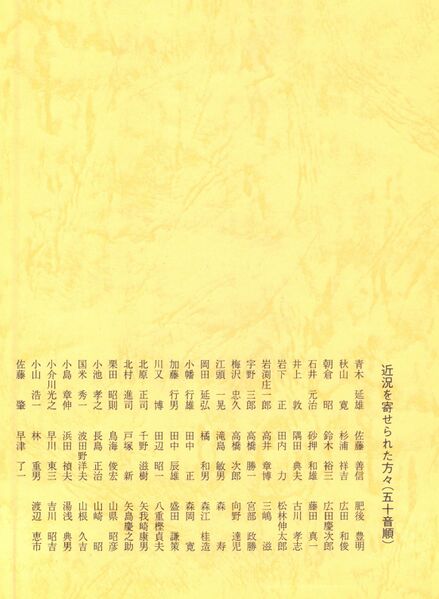 近況を寄せられた方々(五十音順)
青木 延雄
秋山 寛
朝倉 昭
石井 元治
井上 敦
岩下 正
岩渕庄一郎
宇野 三郎
梅沢 忠久
江頭 一晃
岡田 延弘
小幡 行雄
加藤 行男
川又 博
北原 正司
北村 進司
栗田 昭則
小池 孝之
国米 秀一
小島 章伸
小介川光之
小山 浩一
佐藤 肇
佐藤 善信
杉浦 祥吉
鈴木 裕三
砂押 和雄
隅田 典夫
田内 力
高井 章博
高橋 勝一
高橋 次郎
滝島 敏男
橘 和男
田中 正
田中 辰雄
田辺 昭一
千野 滋樹
戸塚 新
鳥海 俊宏
長島 正治
波田野洋夫
浜田 禎夫
早川 東三
林 重男
早津 了一
肥後 豊明
広田 和俊
広田慶次郎
藤田 真一
古川 孝志
松林伸太郎
三嶋 滋
宮部 政勝
向野 達児
森 寿
森江 桂造
森岡 寛
盛田 謙策
八重樫貞夫
矢我崎康男
矢島慶之助
山県 昭彦
山崎 昭
山根 久吉
湯浅 典男
吉川 昭吉
渡辺 恵市